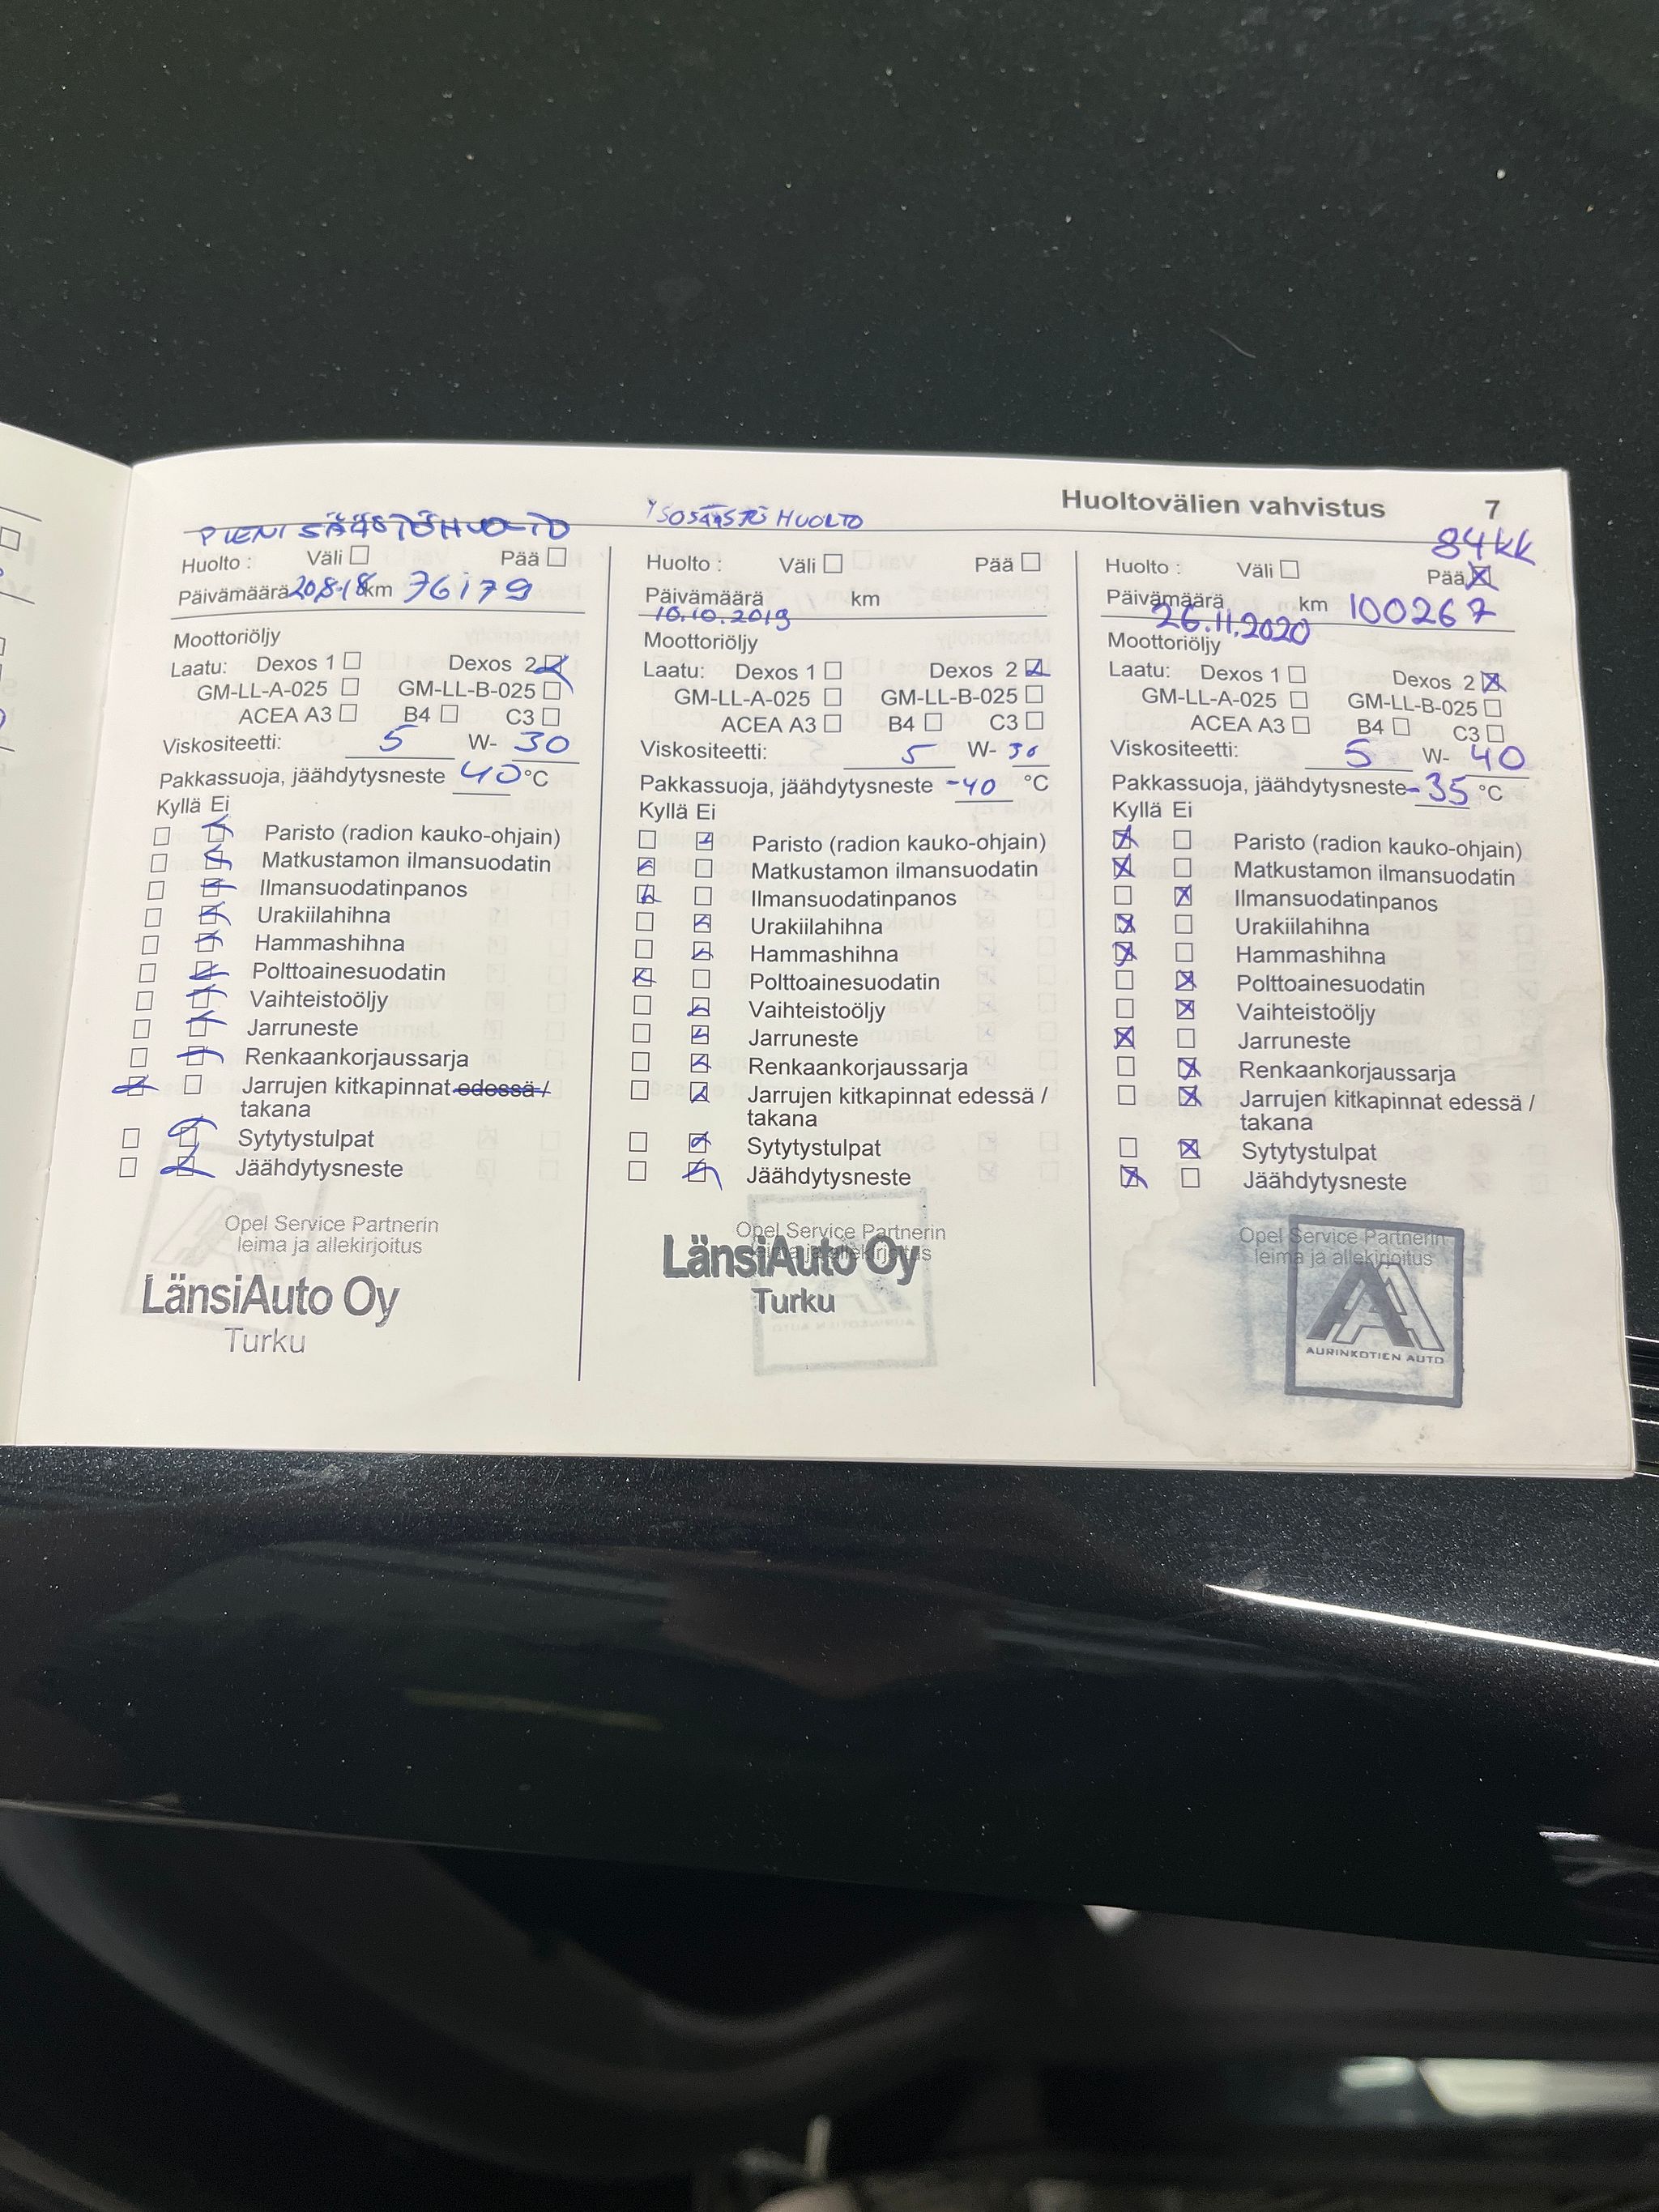 Huoltovälien vahvistus 7
PIENI SÄÄSTÖHUOLTO
Huolto : Väli ☐ Pää ☐
Päivämäärä 20.8.18 km 76179
Moottoriöljy
Laatu: Dexos 1 ☐ Dexos 2 ☑
GM-LL-A-025 ☐ GM-LL-B-025 ☐
ACEA A3 ☐ B4 ☐ C3 ☐
Viskositeetti: 5 W- 30
Pakkassuoja, jäähdytysneste 40 °C
Kyllä Ei
☐ ☑ Paristo (radion kauko-ohjain)
☐ ☑ Matkustamon ilmansuodatin
☐ ☑ Ilmansuodatinpanos
☐ ☑ Urakiilahihna
☐ ☑ Hammashihna
☐ ☑ Polttoainesuodatin
☐ ☑ Vaihteistoöljy
☐ ☑ Jarruneste
☐ ☑ Renkaankorjaussarja
☑ ☐ Jarrujen kitkapinnat edessä /
takana
☐ ☑ Sytytystulpat
☐ ☑ Jäähdytysneste
Opel Service Partnerin
leima ja allekirjoitus
LänsiAuto Oy
Turku
ISOSÄÄSTÖ HUOLTO
Huolto : Väli ☐ Pää ☐
Päivämäärä km
10.10.2019
Moottoriöljy
Laatu: Dexos 1 ☐ Dexos 2 ☑
GM-LL-A-025 ☐ GM-LL-B-025 ☐
ACEA A3 ☐ B4 ☐ C3 ☐
Viskositeetti: 5 W- 30
Pakkassuoja, jäähdytysneste -40 °C
Kyllä Ei
☐ ☑ Paristo (radion kauko-ohjain)
☑ ☐ Matkustamon ilmansuodatin
☑ ☐ Ilmansuodatinpanos
☐ ☑ Urakiilahihna
☐ ☑ Hammashihna
☑ ☐ Polttoainesuodatin
☐ ☑ Vaihteistoöljy
☐ ☑ Jarruneste
☐ ☑ Renkaankorjaussarja
☐ ☑ Jarrujen kitkapinnat edessä /
takana
☐ ☑ Sytytystulpat
☐ ☑ Jäähdytysneste
Opel Service Partnerin
leima ja allekirjoitus
LänsiAuto Oy
Turku
84kk
Huolto : Väli ☐ Pää ☒
Päivämäärä km 100267
26.11.2020
Moottoriöljy
Laatu: Dexos 1 ☐ Dexos 2 ☒
GM-LL-A-025 ☐ GM-LL-B-025 ☐
ACEA A3 ☐ B4 ☐ C3 ☐
Viskositeetti: 5 W- 40
Pakkassuoja, jäähdytysneste -35 °C
Kyllä Ei
☒ ☐ Paristo (radion kauko-ohjain)
☒ ☐ Matkustamon ilmansuodatin
☐ ☒ Ilmansuodatinpanos
☒ ☐ Urakiilahihna
☒ ☐ Hammashihna
☐ ☒ Polttoainesuodatin
☐ ☒ Vaihteistoöljy
☒ ☐ Jarruneste
☐ ☒ Renkaankorjaussarja
☐ ☒ Jarrujen kitkapinnat edessä /
takana
☐ ☒ Sytytystulpat
☒ ☐ Jäähdytysneste
Opel Service Partnerin
leima ja allekirjoitus
AURINKOTIEN AUTO